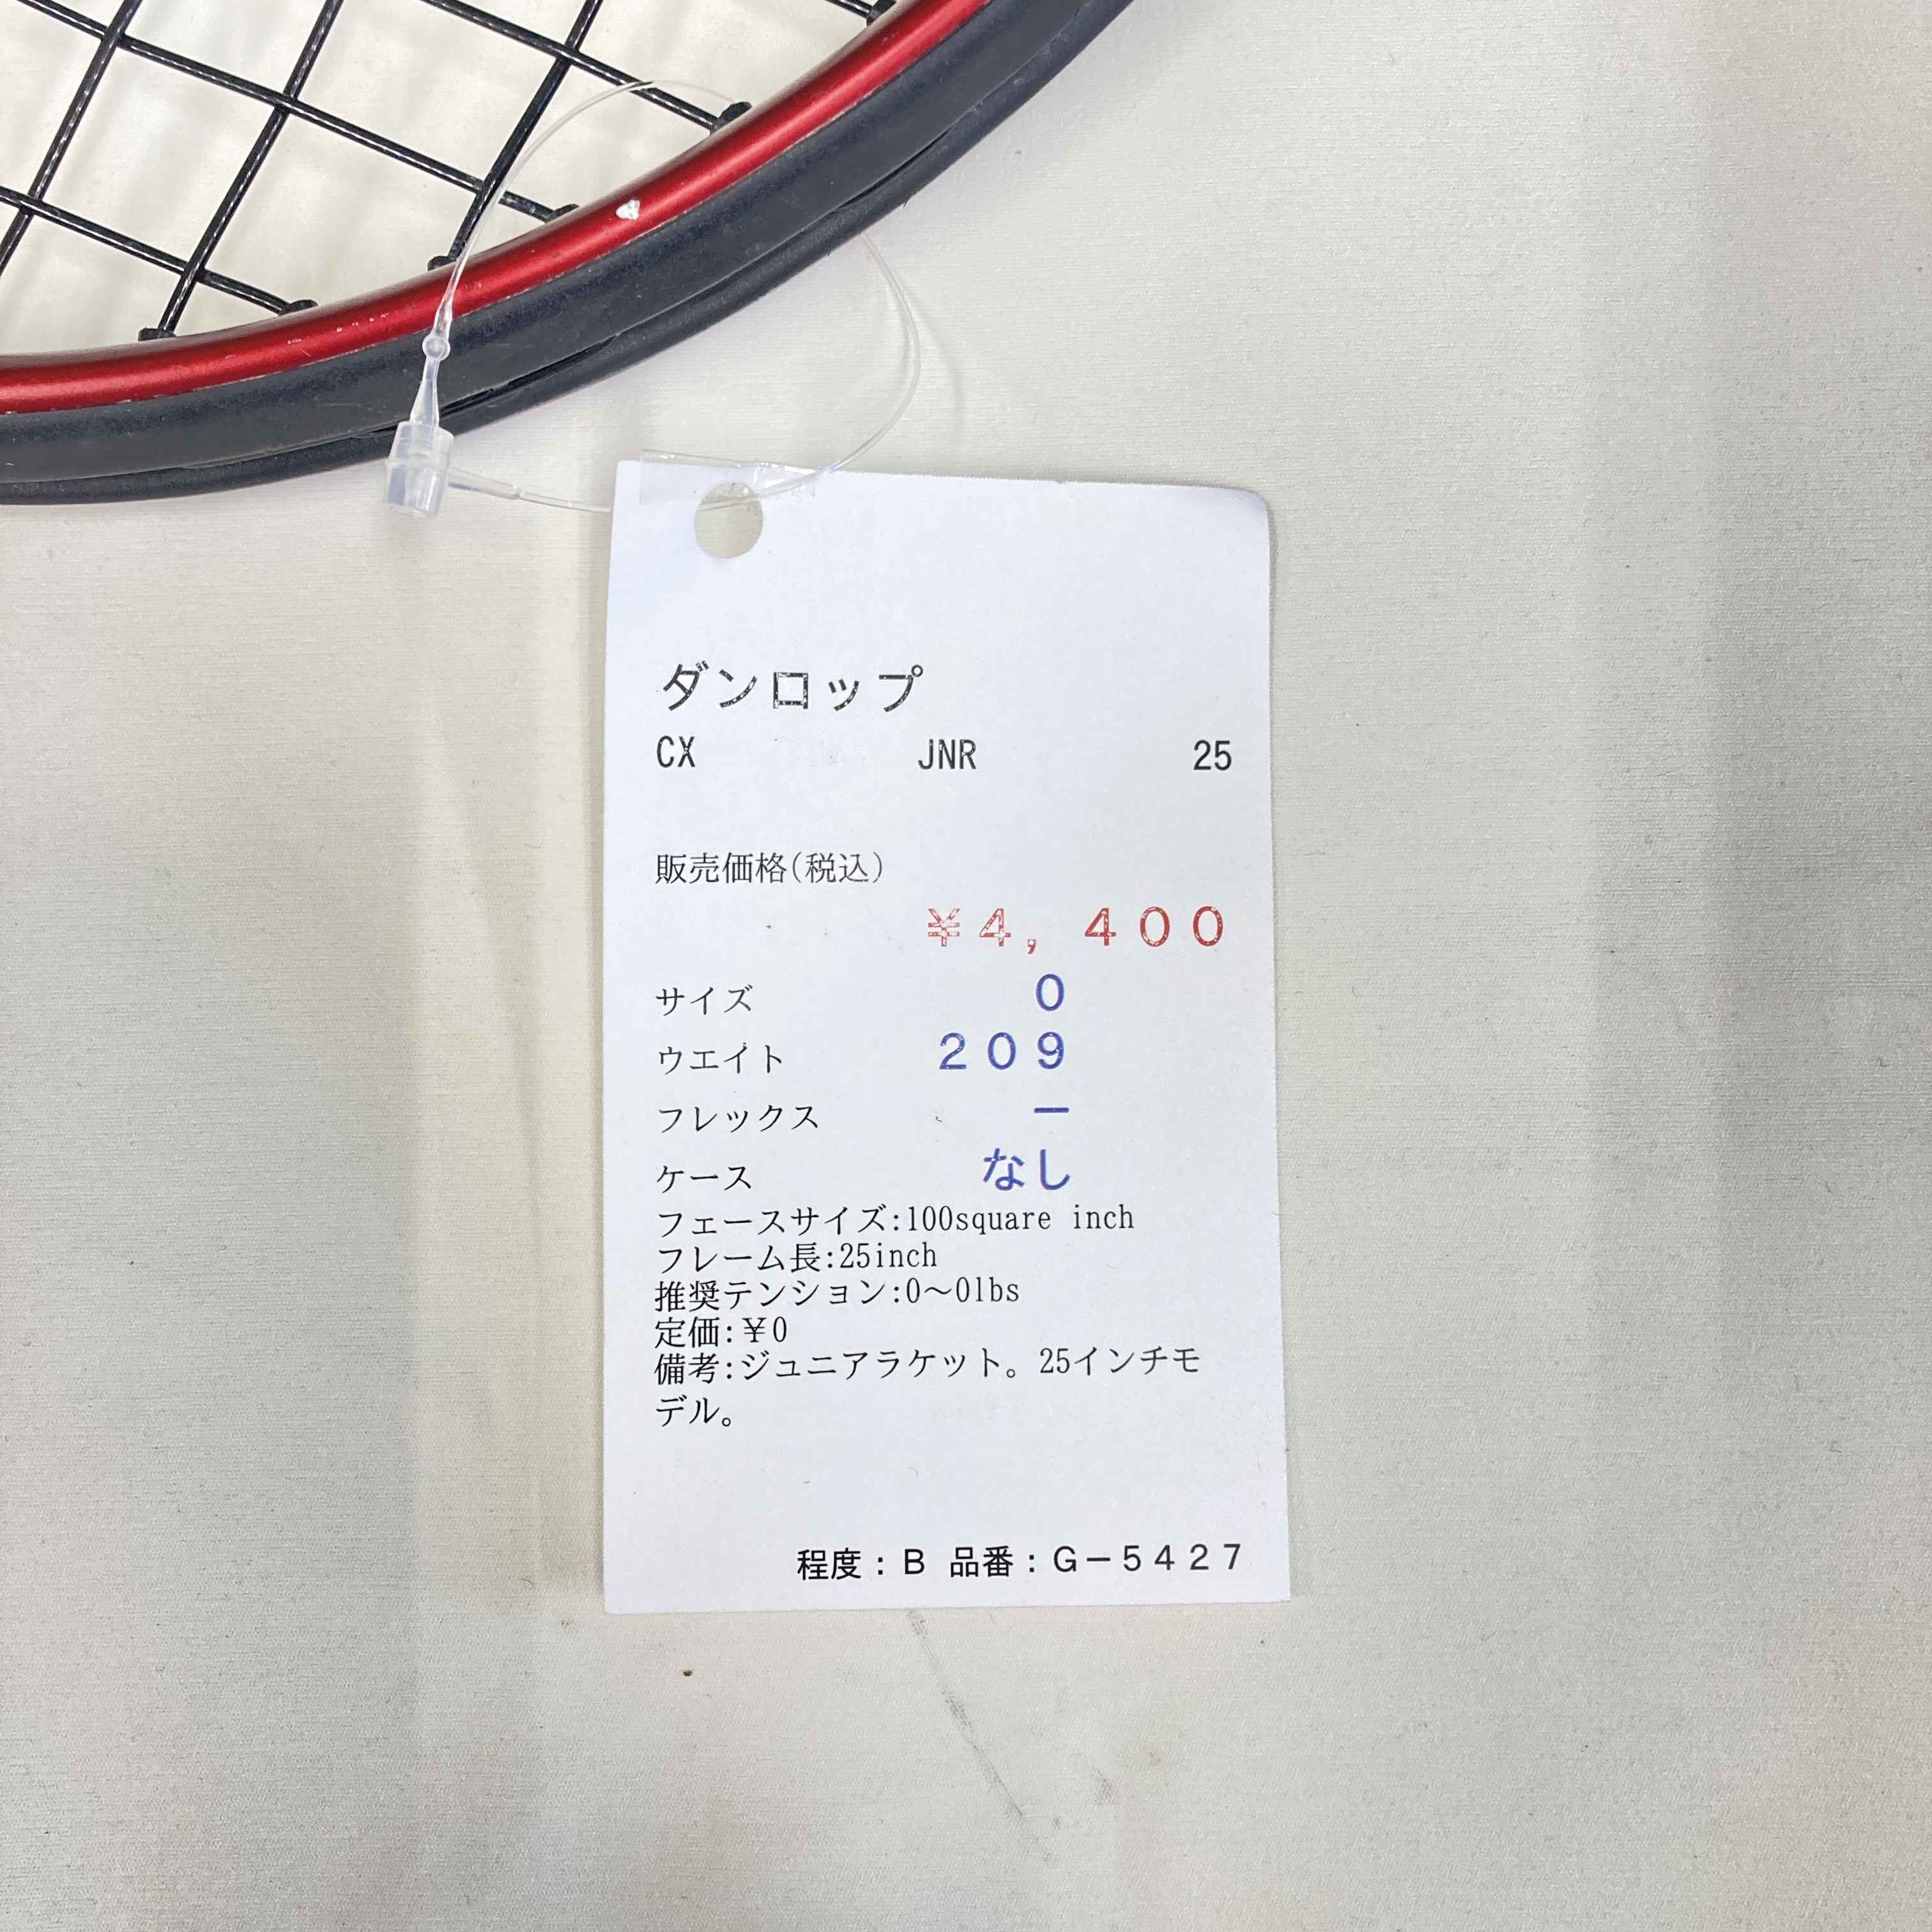 ダンロップ
CX JNR 25
販売価格(税込)
￥4,400
サイズ 0
ウエイト 209
フレックス ー
ケース なし
フェースサイズ:100square inch
フレーム長:25inch
推奨テンション:0～0lbs
定価:￥0
備考:ジュニアラケット。25インチモ
デル。
程度:B 品番:G－5427